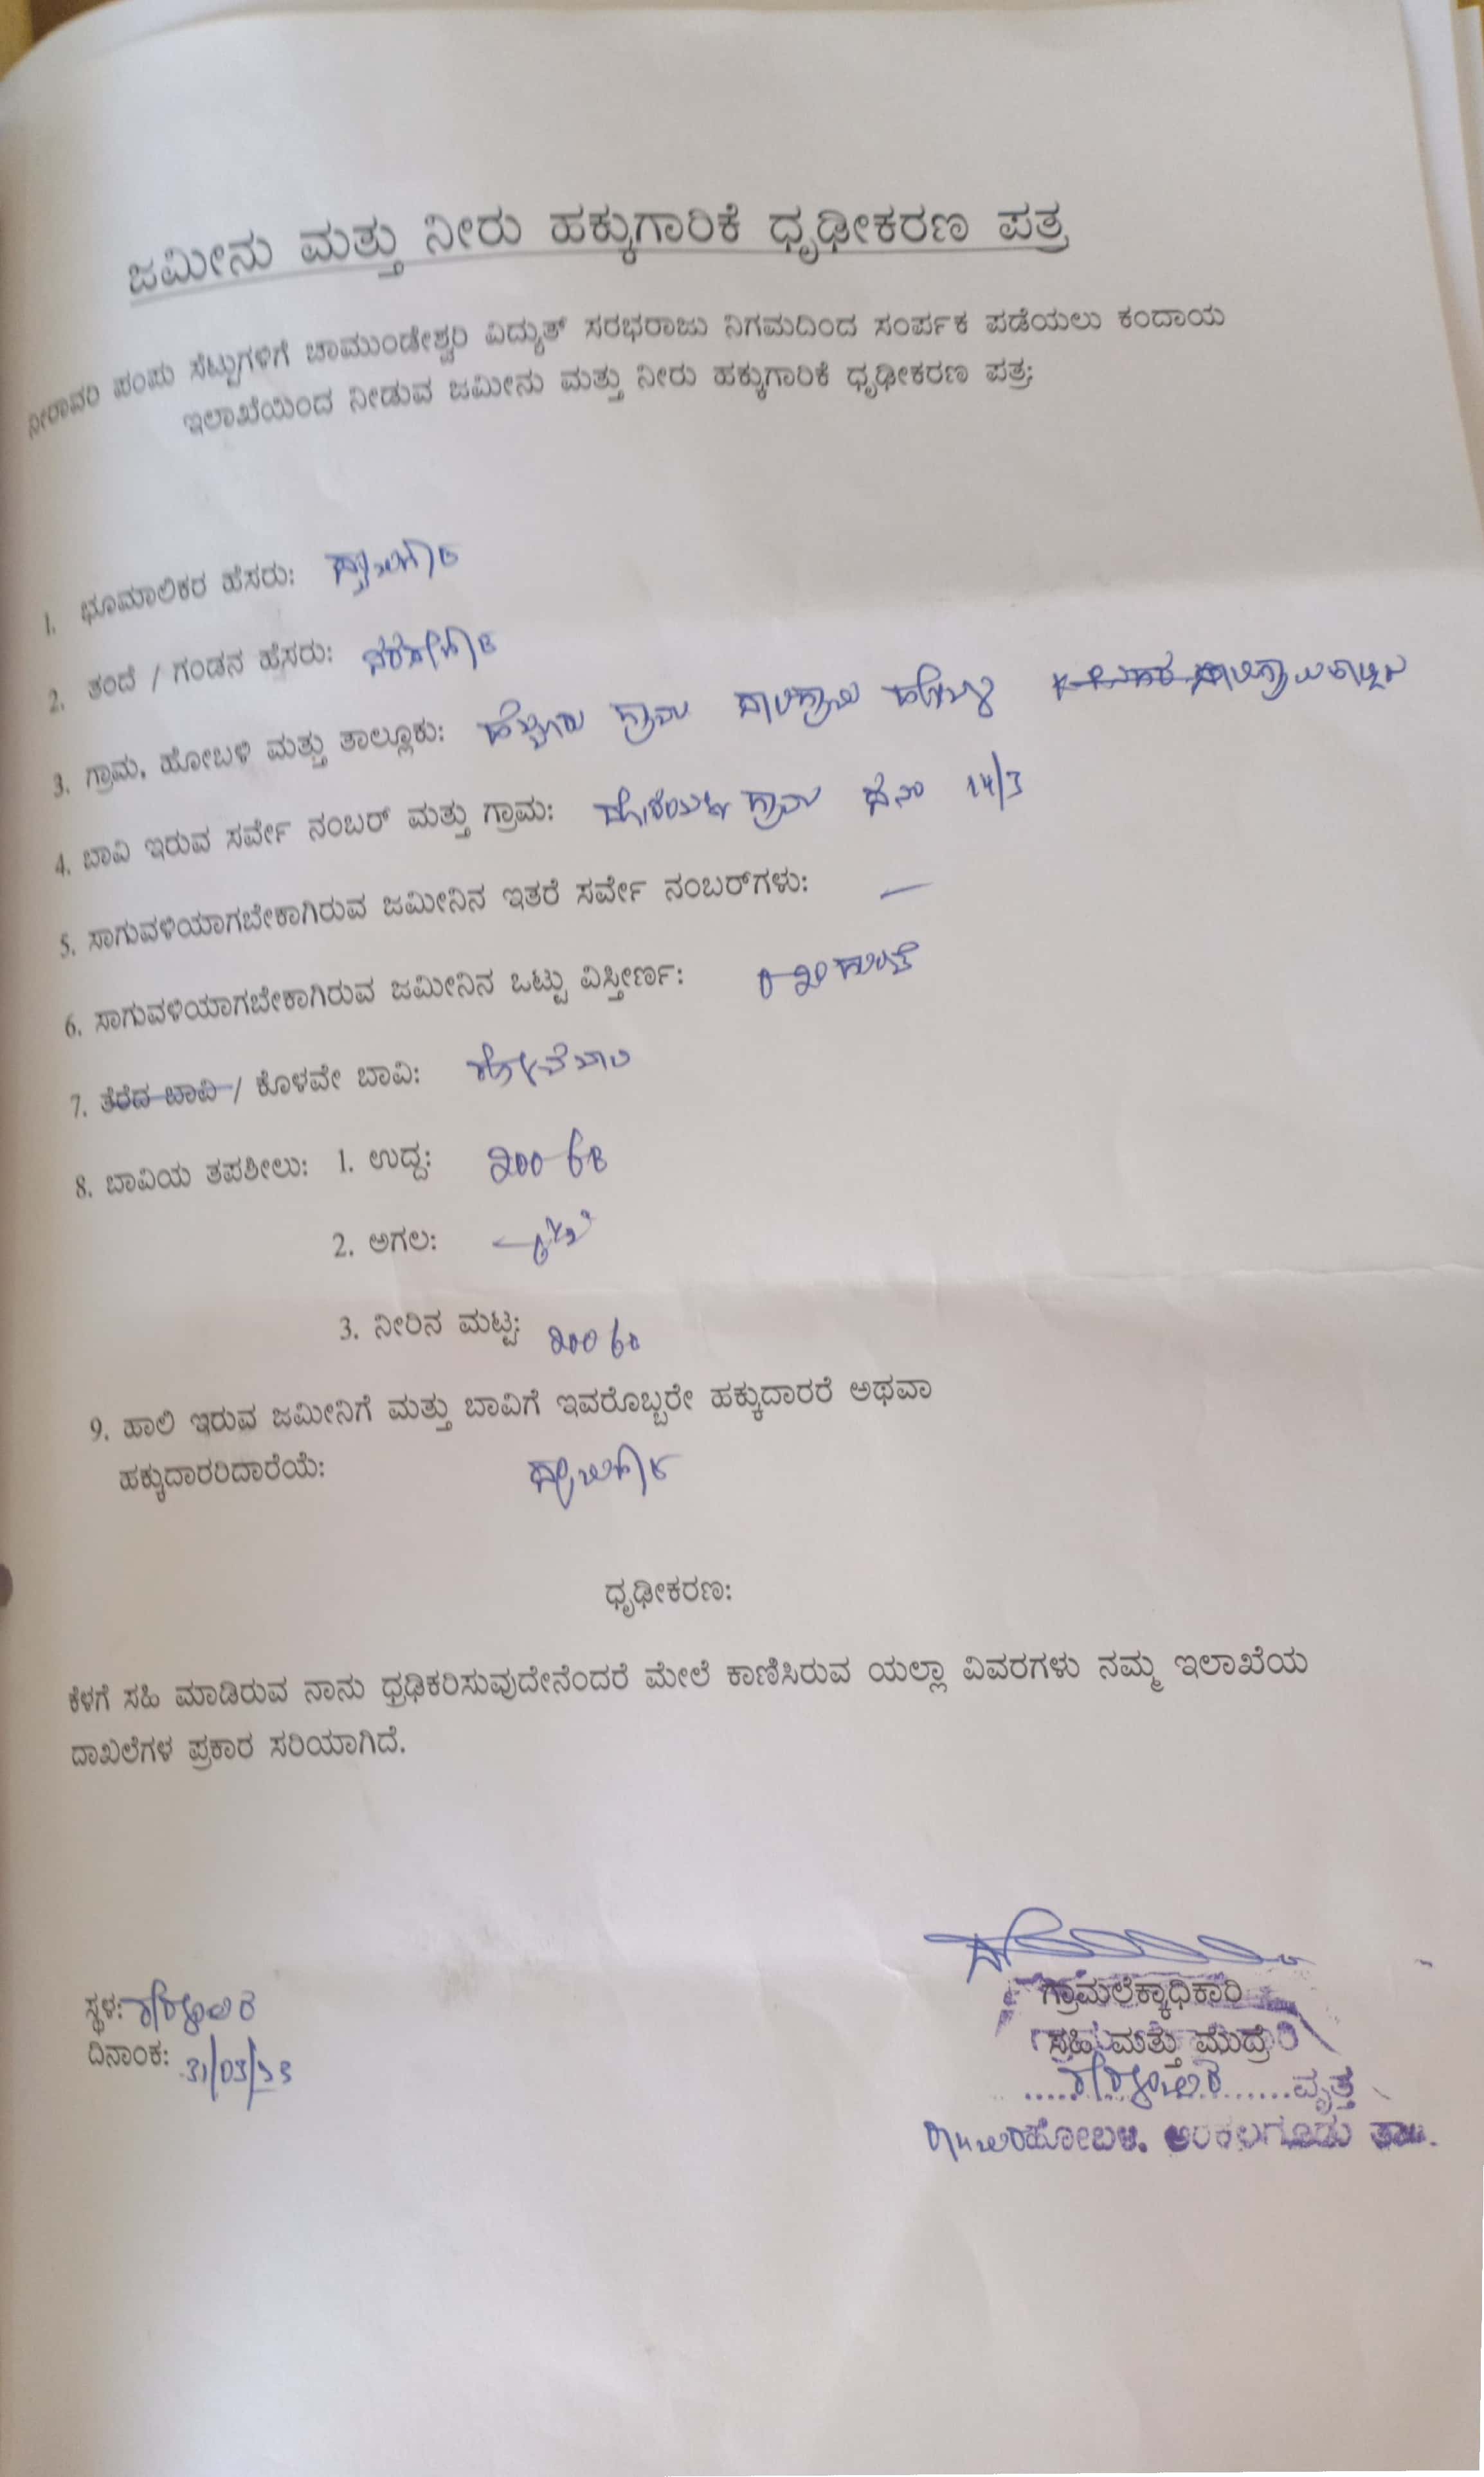 ಜಮೀನು ಮತ್ತು ನೀರು ಹಕ್ಕುಗಾರಿಕೆ ಧೃಢೀಕರಣ ಪತ್ರ
ನೀರಾವರಿ ಪಂಪು ಸೆಟ್ಟುಗಳಿಗೆ ಚಾಮುಂಡೇಶ್ವರಿ ವಿದ್ಯುತ್ ಸರಭರಾಜು ನಿಗಮದಿಂದ ಸಂರ್ಪಕ ಪಡೆಯಲು ಕಂದಾಯ
ಇಲಾಖೆಯಿಂದ ನೀಡುವ ಜಮೀನು ಮತ್ತು ನೀರು ಹಕ್ಕುಗಾರಿಕೆ ಧೃಢೀಕರಣ ಪತ್ರ:
1. ಭೂಮಾಲಿಕರ ಹೆಸರು:
2. ತಂದೆ / ಗಂಡನ ಹೆಸರು:
3. ಗ್ರಾಮ, ಹೋಬಳಿ ಮತ್ತು ತಾಲ್ಲೂಕು: ಗ್ರಾಮ ಸಾಲಿಗ್ರಾಮ ಹೋಬಳಿ
4. ಬಾವಿ ಇರುವ ಸರ್ವೇ ನಂಬರ್ ಮತ್ತು ಗ್ರಾಮ: ಗ್ರಾಮ ಸ.ನಂ 14/3
5. ಸಾಗುವಳಿಯಾಗಬೇಕಾಗಿರುವ ಜಮೀನಿನ ಇತರೆ ಸರ್ವೇ ನಂಬರ್‌ಗಳು: —
6. ಸಾಗುವಳಿಯಾಗಬೇಕಾಗಿರುವ ಜಮೀನಿನ ಒಟ್ಟು ವಿಸ್ತೀರ್ಣ: 0-20 ಗುಂಟೆ
7. ತೆರೆದ ಬಾವಿ / ಕೊಳವೇ ಬಾವಿ:
8. ಬಾವಿಯ ತಪಶೀಲು: 1. ಉದ್ದ: 200
2. ಅಗಲ:
3. ನೀರಿನ ಮಟ್ಟ: 200
9. ಹಾಲಿ ಇರುವ ಜಮೀನಿಗೆ ಮತ್ತು ಬಾವಿಗೆ ಇವರೊಬ್ಬರೇ ಹಕ್ಕುದಾರರೆ ಅಥವಾ
ಹಕ್ಕುದಾರರಿದಾರೆಯೆ:
ಧೃಢೀಕರಣ:
ಕೆಳಗೆ ಸಹಿ ಮಾಡಿರುವ ನಾನು ಧ್ರಢಿಕರಿಸುವುದೇನೆಂದರೆ ಮೇಲೆ ಕಾಣಿಸಿರುವ ಯಲ್ಲಾ ವಿವರಗಳು ನಮ್ಮ ಇಲಾಖೆಯ
ದಾಖಲೆಗಳ ಪ್ರಕಾರ ಸರಿಯಾಗಿದೆ.
ಗ್ರಾಮಲೆಕ್ಕಾಧಿಕಾರಿ
ಸ್ಥಳ:
ಸಹಿ ಮತ್ತು ಮೊದ್ರೆ
ದಿನಾಂಕ: 31/03/23
ವೃತ್ತ
ಹೋಬಳಿ. ಅರಕಲಗೂಡು ತಾ||.